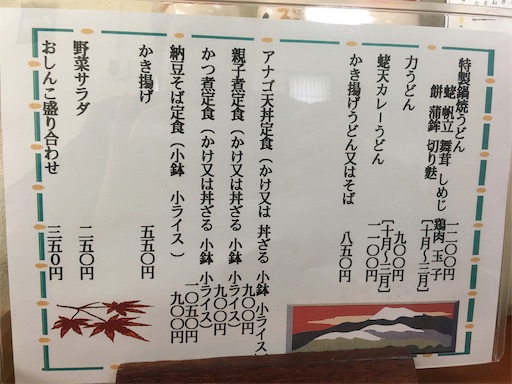 特製鍋焼うどん 一二〇〇円
蛯 帆立 舞茸 しめじ 鶏肉 玉子
餅 蒲鉾 切り麩 [十月〜三月]
力うどん 九〇〇円
[十月〜三月]
蛯天カレーうどん 一一〇〇円
かき揚げうどん又はそば 八五〇円
アナゴ天丼定食(かけ又は 丼ざる 小鉢 小ライス)
九〇〇円
親子煮定食(かけ又は丼ざる 小鉢 小ライス)
九〇〇円
かつ煮定食(かけ又は丼ざる 小鉢 小ライス)
一〇五〇円
納豆そば定食(小鉢 小ライス) 九〇〇円
かき揚げ 五五〇円
野菜サラダ 二五〇円
おしんこ盛り合わせ 三五〇円